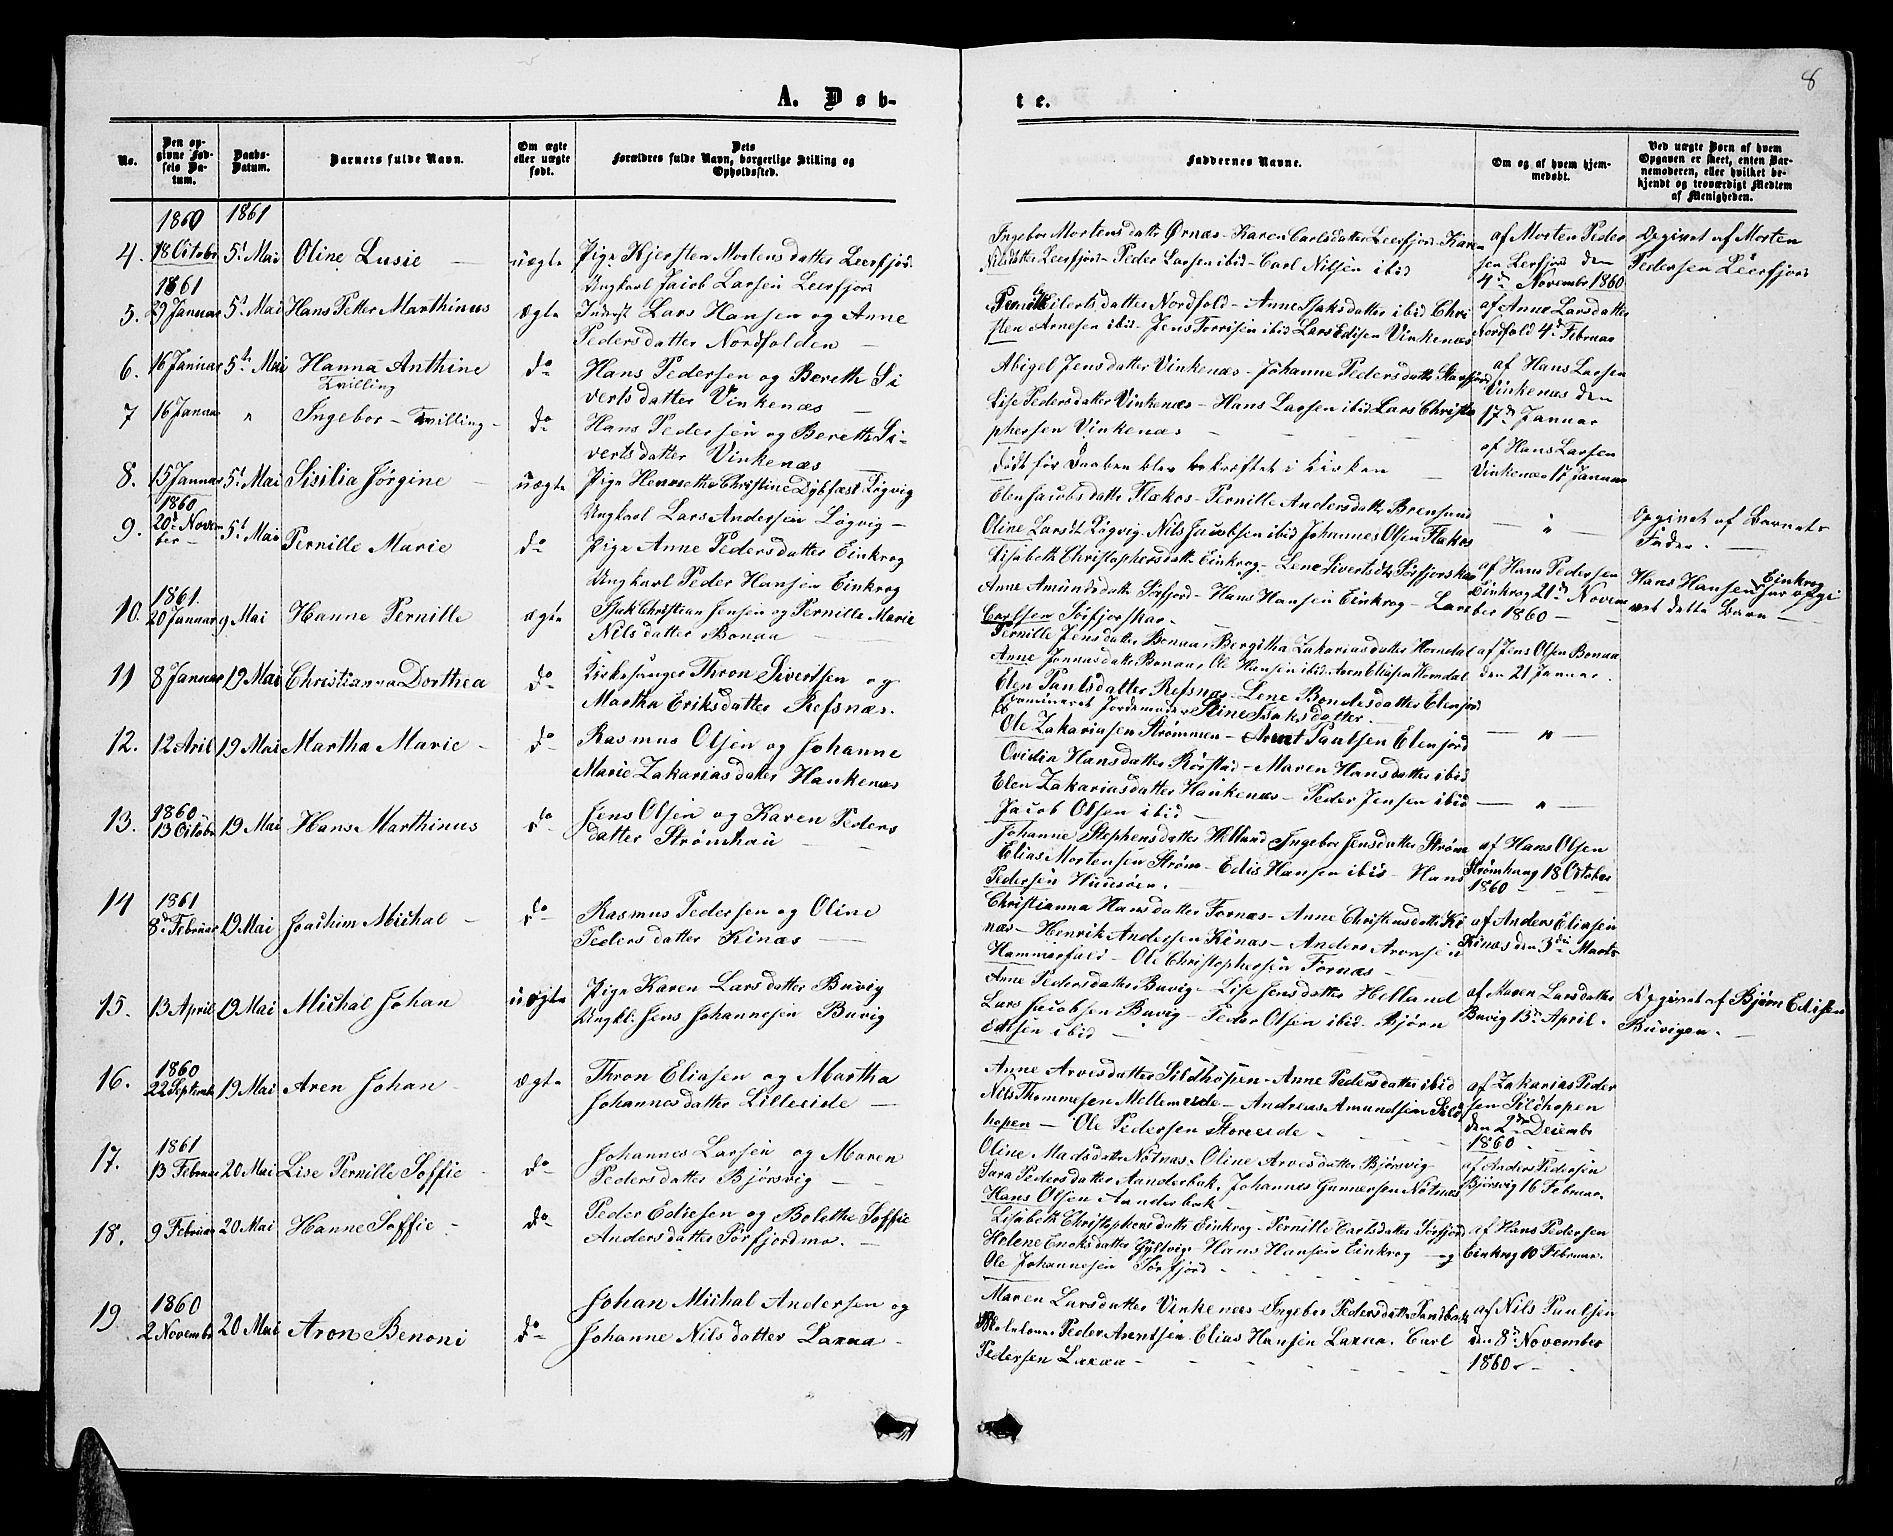 8
A. Døb-
te.
No.
Den opgivne Fødsels Datum.
Daabs-Datum.
Barnets fulde Navn.
Om ægte eller uægte født.
Dets Forældres fulde Navn, borgerlige Stilling og Opholdssted.
Faddernes Navne.
Om og af hvem hjemmedøbt.
Ved uægte Børn af hvem Opgaven er skeet, enten Barnemoderen, eller hvilket bekjendt og troværdigt Medlem af Menigheden.
1860 1861
4. 18 Octobr 5t Mai Oline Lusie — uægte Pige Kjersten Mortensdatter Leerfjord.
Ungkarl Jacob Larsen Leerfjord
Ingebor Mortensdatter Ørnæs - Karen Carlsdatter Leerfjord - Karen
Nilsdatter Leerfjord - Peder Larsen ibid - Carl Nilsen ibid
af Morten Pedersen Leerfjord den 4de November 1860
Opgivet af Morten Pedersen Leerfjord
1861
5. 29 Januar 5t Mai Hans Petter Marthinus ægte Inderst Lars Hansen og Anne
Pedersdatter Nordfolden —
Eilertsdatter Nordfold - Anne Isaksdatter ibid Chri
sten Arnesen ibid - Jens Torrisen ibid Lars Edisen Vinkenæs
af Anne Larsdatter
Nordfold 4de Februar
6. 16 Januar 5te Mai Hanna Anthine do Hans Pedersen og Bereth Si
Tvilling
vertsdatter Vinkenæs —
Abigel Jensdatter Vinkenæs - Johanne Pedersdatter
Lise Pedersdatter Vinkenæs - Hans Larsen ibid Lars Christo
phersen Vinkenæs
af Hans Larsen
Vinkenæs den
17de Januar
7 16 Januar " Ingebor - Tvilling - do Hans Pedersen og Bereth Si-
vertsdatter Vinkenæs
Dødt før Daaben blev bekræftet i Kirken
af Hans Larsen
Vinkenæs 17 Januar
8. 15 Januar 5t Mai Sisilia Jørgine — uægte Pige Henrette Christine Dybfæst Løgvig
Ungkarl Lars Andersen Løgvig —
Elen Jacobsdatter Flækos - Pernille Andersdatter Brensund
Oline Larsdt Løgvig Nils Jacobsen ibid Johannes Olsen Flækos
— " —
Opgivet af Barnets
Fader. —
1860
9. 20de November 5t Mai Pernille Marie do Pige Anne Pedersdatter Einkrog
Ungkarl Peder Hansen Einkrog
Lisabeth Christophersdatt Einkrog - Lene Sivertsdt Sørfjorskar
Anne Amundsdatter Sørfjord - Hans Hansen Einkrog - Lars
Carlsen Sørfjorskar -
af Hans Pedersen
Einkrog 21de Novem
ber 1860 —
Hans Hansen Einkrog har opgi
vet dette Barn —
1861.
10. 20 Januar 9 Mai Hanne Pernille ægte Isak Christian Jensen og Pernille Marie
Nilsdatter Bonaa —
Pernille Jensdatter Bonaas Bergitha Zakariasdatter Horndal
Anne Jonnasdatter Bonaas Ole Hansen ibid Arn Eliasen Horndal
af Jens Olsen Bonaa
den 21 Januar.
11 8 Januar 19 Mai Christianna Dorthea do Kirkesanger Thron Sivertsen og
Martha Eriksdatter Refsnæs.
Elen Paulsdatter Refsnæs - Lene Bendesdatter Elenjord
Examineret Jordemoder Stine Isaksdatter —
Ole Zakariasen Strømmen - Arnt Paulsen Elenjord
— " —
12. 12 April 19 Mai Martha Marie - do Rasmus Olsen og Johanne
Marie Zakariasdatter Haukenæs
Ovidia Hansdatter Rørstad - Maren Hansdatter ibid
Elen Zakariasdatter Haukenæs - Peder Jensen ibid
Jacob Olsen ibid —
— " —
1860
13. 13 Octobr 19 Mai Hans Marthinus do Jens Olsen og Karen Peders
datter Strømhau —
Johanne Stephensdatter Helland Ingebor Jensdatter Strøm
Elias Mortensen Strøm - Edis Hansen ibid - Hans
Pedersen Huusøen. -
af Hans Olsen
Strømhaug 18 October
1860 —
1861
14 8de Februar 19 Mai Joachim Michal — do Rasmus Pedersen og Oline
Pedersdatter Kinæs —
Christianna Hansdatter Fornæs - Anne Christensdatter Ki
næs - Henrik Andersen Kinæs - Anders Aronsen
Hammerfald - Ole Christophersen Fornæs -
af Anders Eliasen
Kinæs den 3die Marts
15. 13 April 19 Mai Michal Johan uægte Pige Karen Larsdatter Buvig
Ungkl. Jens Johannesen Buvig
Anne Pedersdatter Buvig - Lise Jensdatter Helland
Lars Jacobsen Buvig - Peder Olsen ibid. Bjørn
Edisen ibid —
af Maren Larsdatter
Buvig 13de April.
Opgivet af Bjørn Edisen
Buvigen. —
1860
16. 22 Septembr 19 Mai Aren Johan — ægte Thron Eliasen og Martha
Johannesdatter Lilleeide —
Anne Arvesdatter Sildhopen - Anne Pedersdatter ibid
Nils Thommesen Mellemeide - Andreas Amundsen Sild
hopen — Ole Pedersen Storeeide -
af Zakarias Peder
sen Sildhopen
den 2den Decembr
1860 —
1861
17. 13 Februar 20 Mai Lise Pernille Soffie - do Johannes Larsen og Maren
Pedersdatter Bjørsvig —
Oline Madsdatter Notnæs - Oline Arvesdatter Bjørsvig
Sara Pedersdatter Aanderbak. Johannes Gunnersen Notnæs
Hans Olsen Aanderbak
af Anders Pedersen
Bjørsvig 16 Februar.
18. 9 Februar 20 Mai Hanne Soffie - do Peder Edisen og Bolethe Soffie
Andersdatter Sørfjordmo. —
Lisabeth Christophersdatt Einkrog - Pernille Carlsdatter Sørfjord
Helene Enoksdatter Gyltvig - Hans Hansen Einkrog — og
Ole Johannesen Sørfjord -
af Hans Pedersen
Einkrog 10 Februar.
1860
19 2 Novembr 20 Mai Aron Benoni do Johan Michal Andersen og
Johanne Nilsdatter Laxaa —
Maren Larsdatter Vinkenæs - Ingebor Pedersdatter Sandbak
Peder Arentsen - Elias Hansen Laxaa. Carl
Pedersen Laxaa —
af Nils Paulsen
den 8de November
1860 —